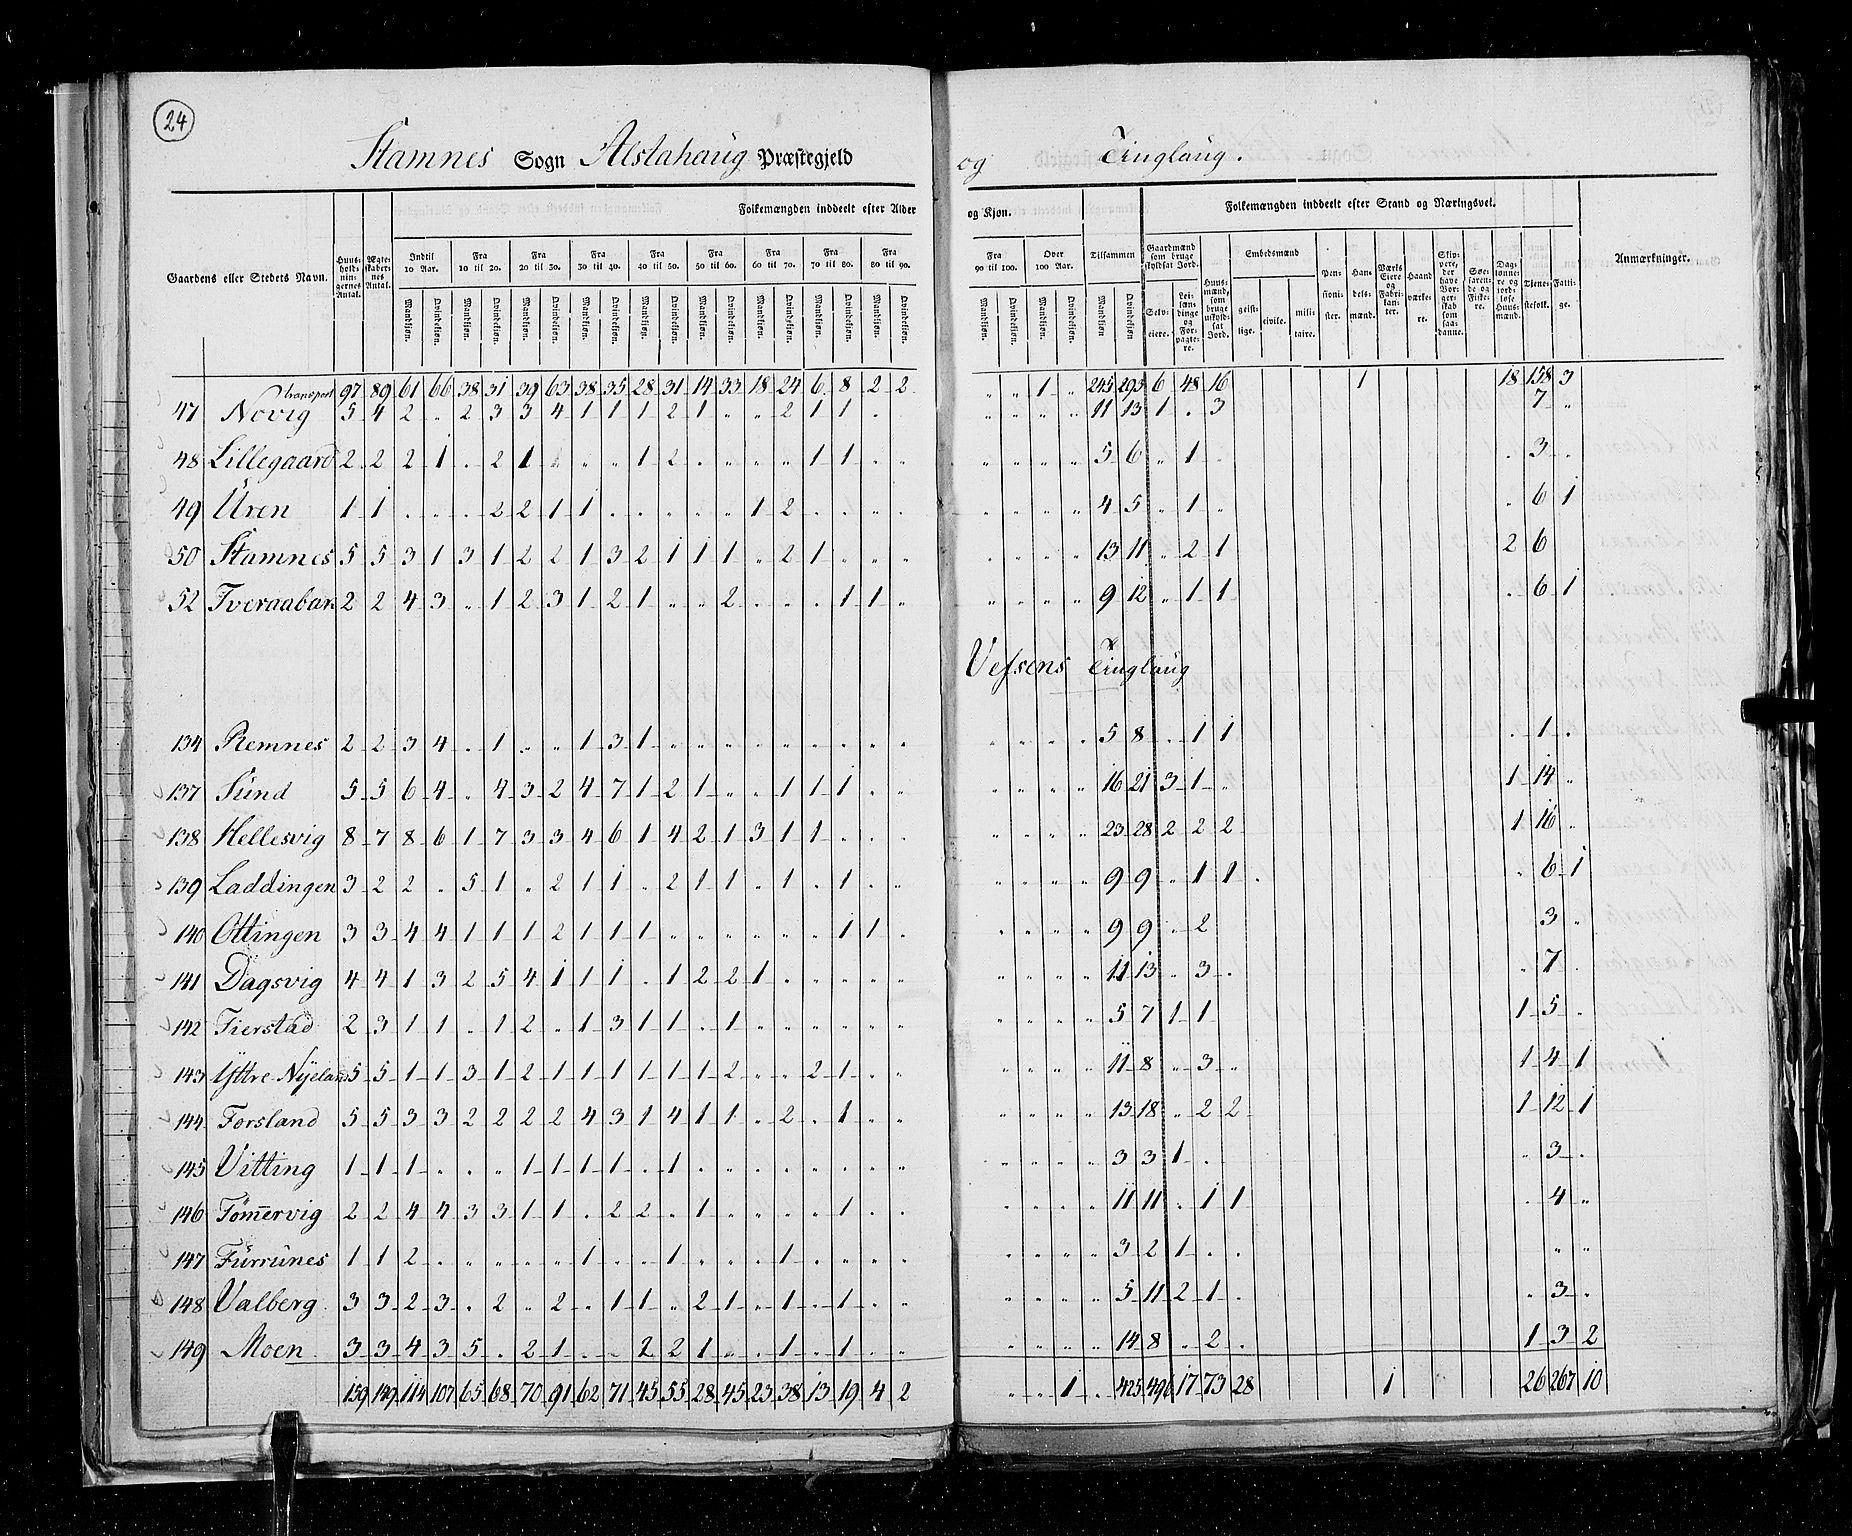 24
Stamnes Sogn Alstahaug Præstegjeld og Tinglaug.
Folkemængden inddeelt efter Alder og Kjøn. Folkemængden inddeelt efter Stand og Næringsvei.
Gaardens eller Stedets Navn. Huusholdningernes Antal. Ægteskabernes Antal. Indtil 10 Aar. Fra 10 til 20. Fra 20 til 30. Fra 30 til 40. Fra 40 til 50. Fra 50 til 60. Fra 60 til 70. Fra 70 til 80. Fra 80 til 90. Fra 90 til 100. Over 100 Aar. Tilsammen Gaardmænd som bruge skyldsat Jord. Huusmænd, som bruge uskyldsat Jord. Embedsmænd Pensionister. Handelsmænd. Værks Eiere og Fabrikanter. Haandværkere. Skippere, der have Borgerskab som saadanne. Søefarende og Fiskere. Daglønnere og jordløse Huusmænd. Tjenestefolk. Fattige. Anmærkninger.
Mandkjøn. Qvindekjøn. Mandkjøn. Qvindekjøn. Mandkjøn. Qvindekjøn. Mandkjøn. Qvindekjøn. Mandkjøn. Qvindekjøn. Mandkjøn. Qvindekjøn. Mandkjøn. Qvindekjøn. Mandkjøn. Qvindekjøn. Mandkjøn. Qvindekjøn. Mandkjøn. Qvindekjøn. Mandkjøn. Qvindekjøn. Mandkjøn Qvindekjøn. Selveiere. Leilændinge og Forpagtere. geistlige. civile. militaire.
transport 97 89 61 66 38 31 39 63 38 35 28 31 14 33 18 24 6 8 2 2 " " 1 " 245 293 6 48 16 1 18 158 3
47 Novig 5 4 2 " 2 3 3 4 1 1 1 2 1 " " 2 1 1 " " " " " 11 13 1 . 3 7 "
48 Lillegaard 2 2 2 1 . 2 1 " " 1 2 . " " " 1 1 . " " " " " 5 6 " 1 . . 3 .
49 Uren 1 1 . . . 2 2 1 1 . . . . . 1 2 . . . . " " " " 4 5 " 1 " " 6 1
50 Stamnes 5 5 3 1 3 1 2 2 1 3 2 1 1 1 " 2 1 . . . " " " " 13 11 " 2 1 2 6
52 Tveraabak 2 2 4 3 " 1 2 3 1 2 1 " " 2 . . . 1 1 " " " " " 9 12 " 1 1 . 6 1
Vefsens Tinglaug
134 Remnes 2 2 3 4 . 1 " " 1 3 1 " " " " " " " " " " " " " 5 8 . 1 1 . 1 .
137 Sund 5 5 6 4 " 4 3 2 4 7 1 2 1 " " 1 1 1 " " " " " " 16 21 3 1 " 1 14 "
138 Hellesvig 8 7 8 6 1 7 3 3 4 6 1 4 2 1 3 1 1 . . . " " " " 23 28 2 2 2 1 16 "
139 Laddingen 3 2 2 . 5 1 . 2 1 1 . 2 1 1 . 1 . 1 . " " " " " 9 9 " 1 1 . " 6 1
140 Ottingen 3 3 4 4 1 1 1 2 1 1 1 " " " " " " 1 1 . " " " " 9 9 " 2 3 "
141 Dagsvig 4 4 1 3 2 5 4 1 1 1 . 1 2 2 1 . . . . . " " " " 11 13 " 3 . " 7 .
142 Tierstad 2 3 1 1 . 1 2 " 1 3 1 1 . 1 " " " " " " " " " " 5 7 1 1 1 5 .
143 Yttre Nyeland 5 5 1 1 3 1 2 1 1 1 1 1 1 2 " " 2 1 " " " " " " 11 8 " 3 " 1 4 1
144 Forsland 5 5 3 3 2 2 2 2 4 3 1 4 1 1 " 2 . 1 " " " " " " 13 18 " 2 2 1 12 1
145 Vitting 1 1 1 . " " 1 1 1 1 . 1 . . . . . . " " " " " " 3 3 1 . . " 3 .
146 Tømmervig 2 2 4 4 3 3 1 1 . 2 2 " 1 " " " " 1 . " " " " " 11 11 . 1 1 . 4 "
147 Furrunes 1 1 2 . " " " " 1 . " 1 " " " 1 " " " " " " " " 3 2 1 . . " "
148 Valberg 3 3 2 3 . 2 " 2 . 1 1 " 2 1 " 1 . 1 . " " " " " 5 11 2 1 . " 3 .
149 Moen 3 3 4 3 5 . 2 1 . . 2 2 1 " . 1 . 1 . " " " " " 14 8 " 2 . 1 3 2
159 149 114 107 65 68 70 91 62 71 45 55 28 45 23 38 13 19 4 2 " " 1 . 425 496 17 73 28 1 26 267 10